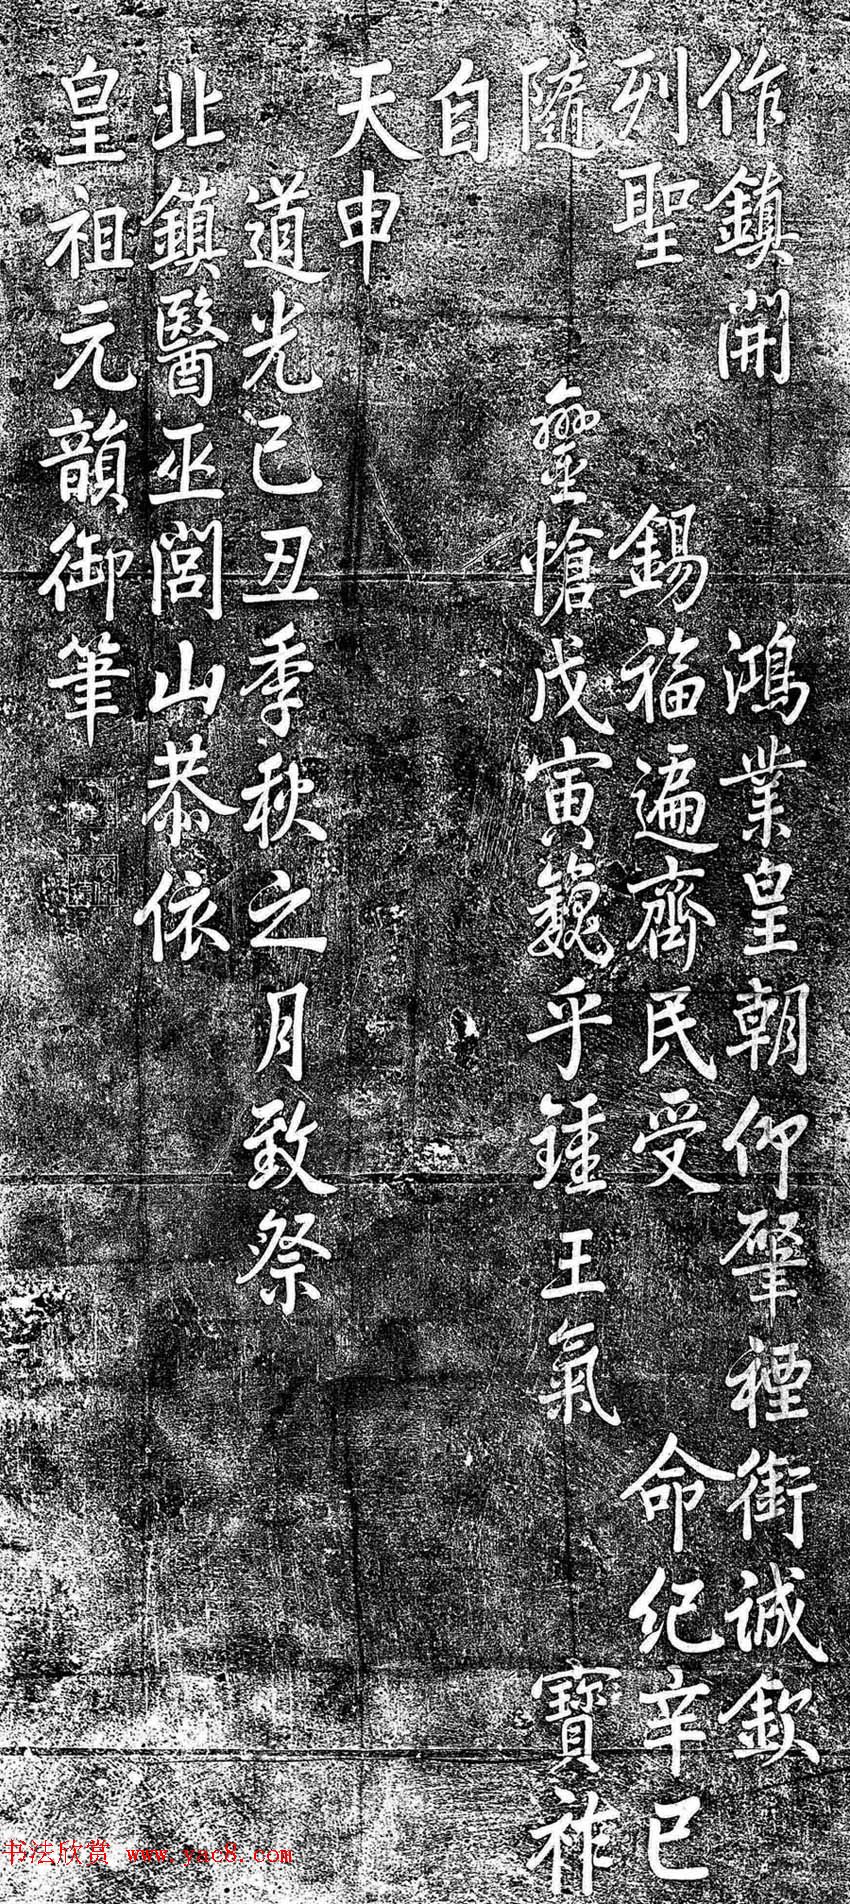 作鎮開 鴻業皇朝仰肇禋銜誠欽
列聖 錫福遍齊民受 命紀辛巳
隨 鑾愴戊寅巍乎鍾王氣 寶祚
自
天申
道光己丑季秋之月致祭
北鎮醫巫閭山恭依
皇祖元韻御筆
书法欣赏 www.yac8.com